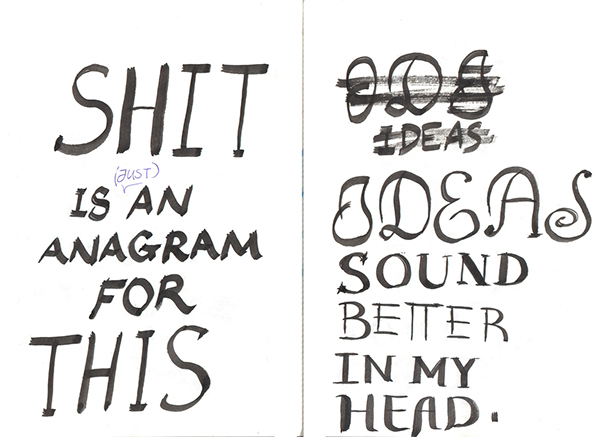 SHIT
(JUST)
IS AN
ANAGRAM
FOR
THIS
IDS
IDEAS
IDEAS
SOUND
BETTER
IN MY
HEAD.